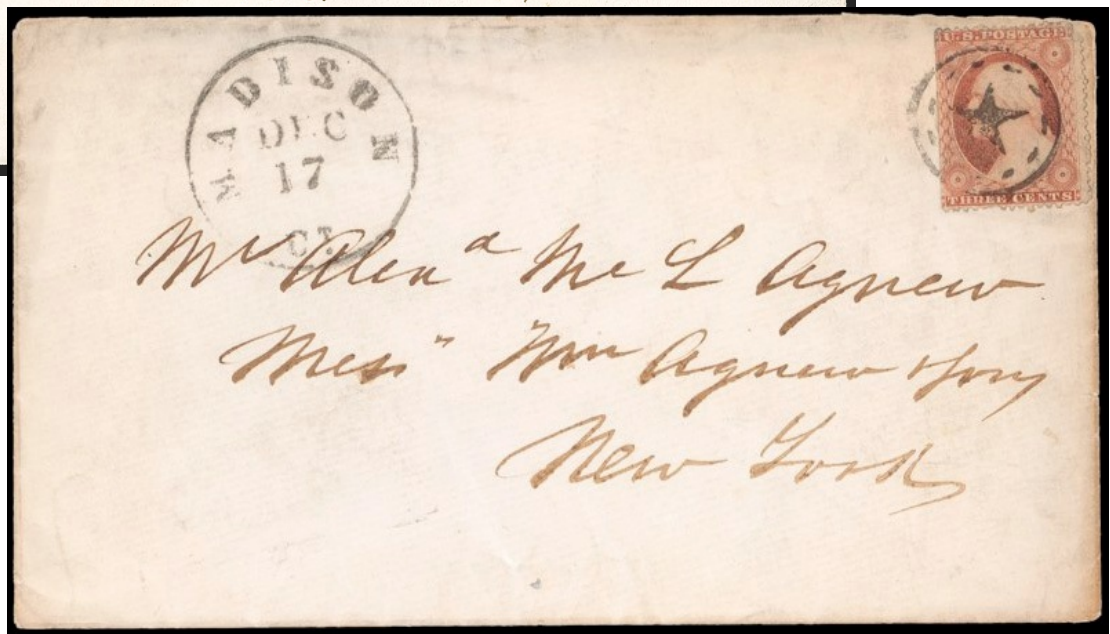 MADISON
DEC
17
CT.
U.S. POSTAGE
THREE CENTS
Mr Alexa Mc L Agnew
Mess" Wm Agnew & Sons
New York